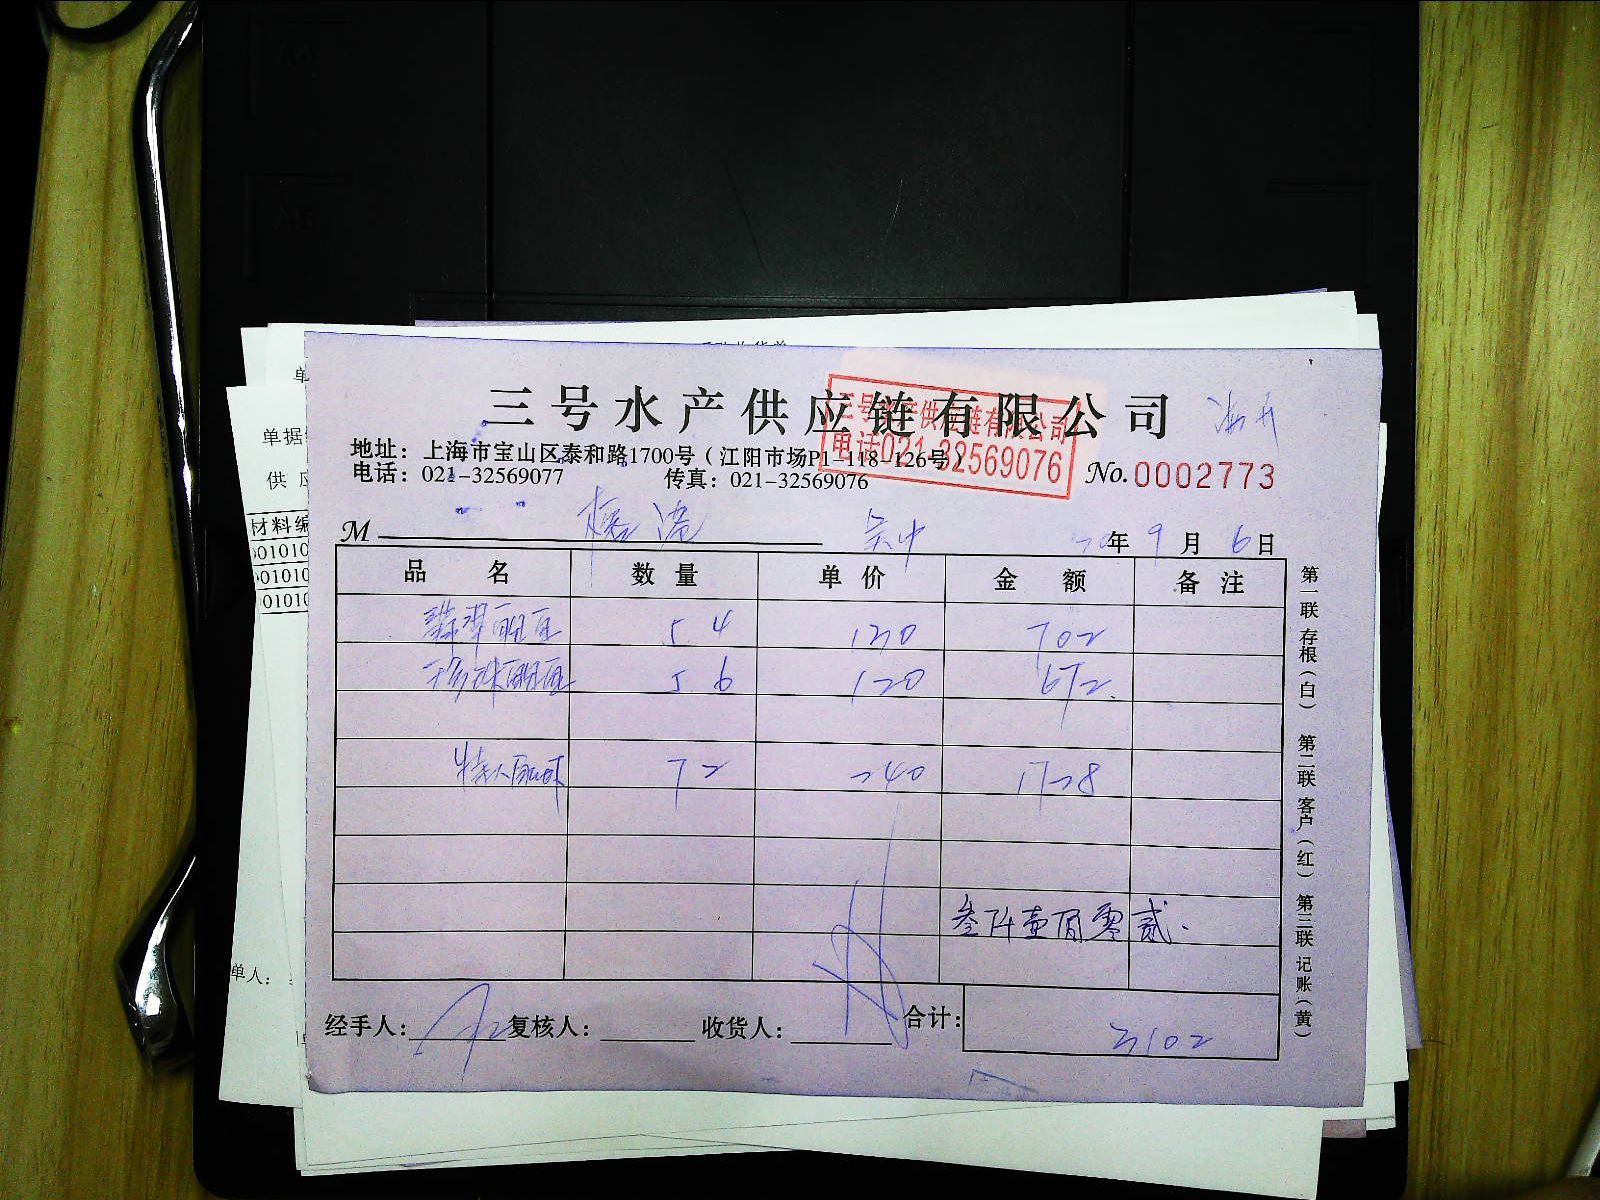 三号水产供应链有限公司
三号水产供应链有限公司
电话021-32569076
地址：上海市宝山区泰和路1700号（江阳市场P1-118-126号）
电话：021-32569077 传真：021-32569076
No.0002773
M
年 9 月 6 日
品 名 数 量 单 价 金 额 备 注
翡翠 5.4 130 702
珍珠 5.6 120 672
7.2 240 1728
叁仟壹佰零贰.
经手人： 复核人： 收货人： 合计： 3102
第一联 存根（白） 第二联 客户（红） 第三联 记账（黄）
单据
供 应
材料编
01010
01010
01010
单人：